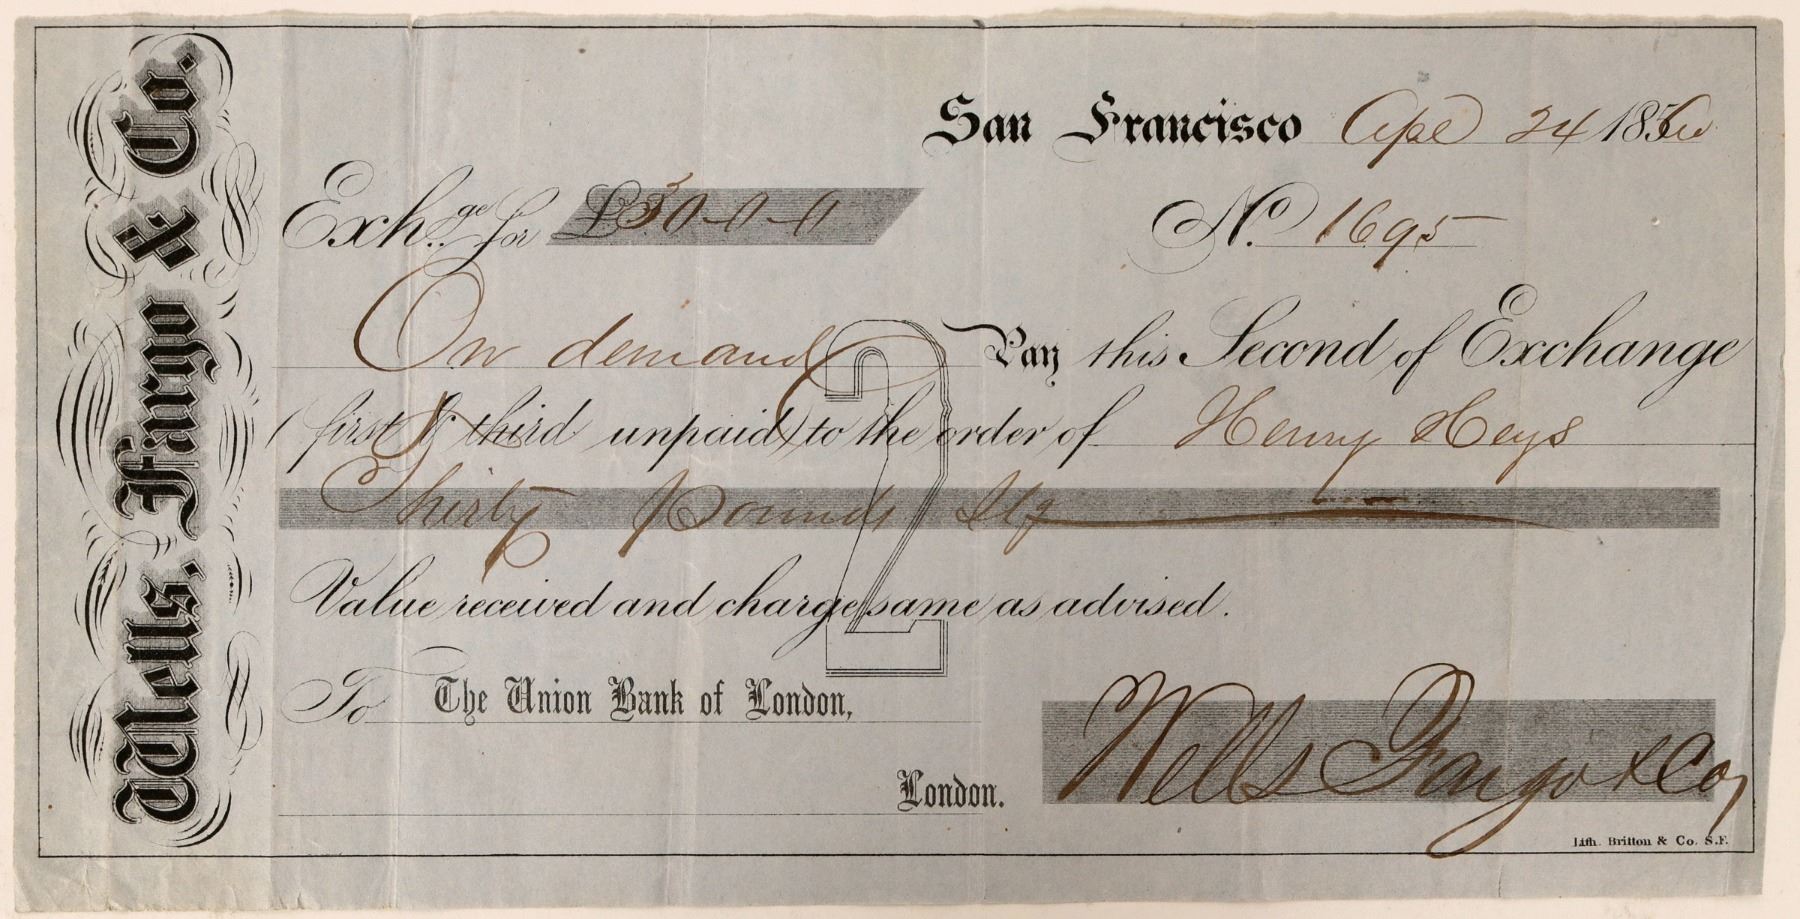 Wells, Fargo & Co.
San Francisco Apl 24 1860
Exch.ge for £30-0-0
No. 1695
On demand Pay this Second of Exchange
(first & third unpaid) to the order of Henry Heys
Thirty Pounds Stg
2
Value received and charge same as advised.
To The Union Bank of London,
London.
Wells Fargo & Co
Lith. Britton & Co. S.F.